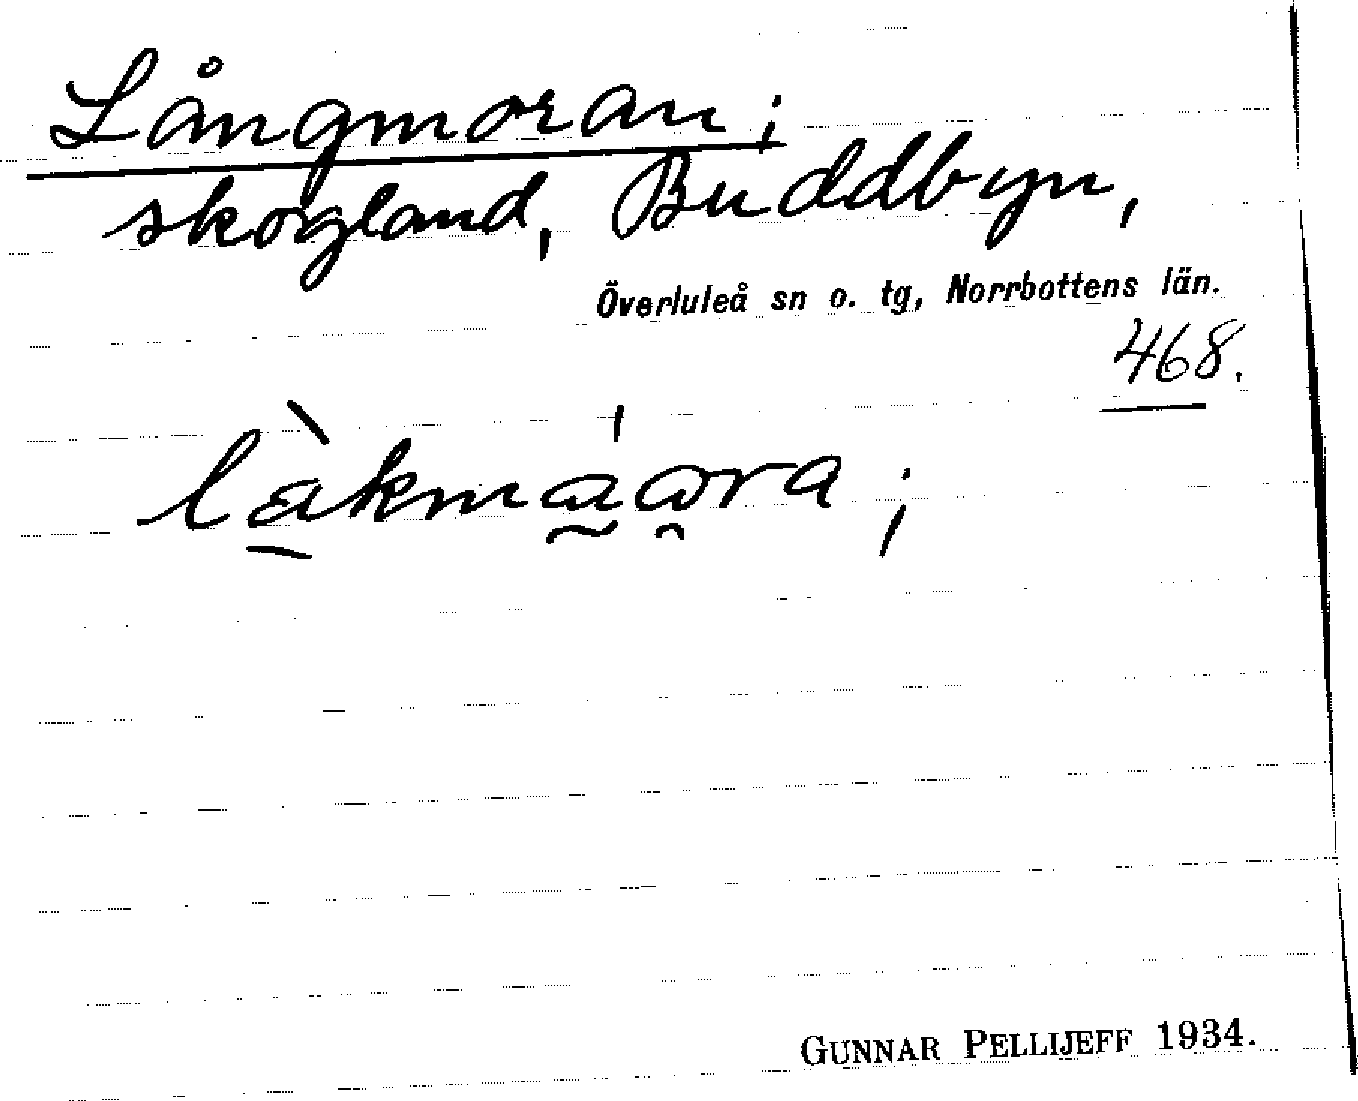 Långmoran;
skogland, Buddbyn,
Överluleå sn o. tg, Norrbottens län.
468.
GUNNAR PELLIJEFF 1934.